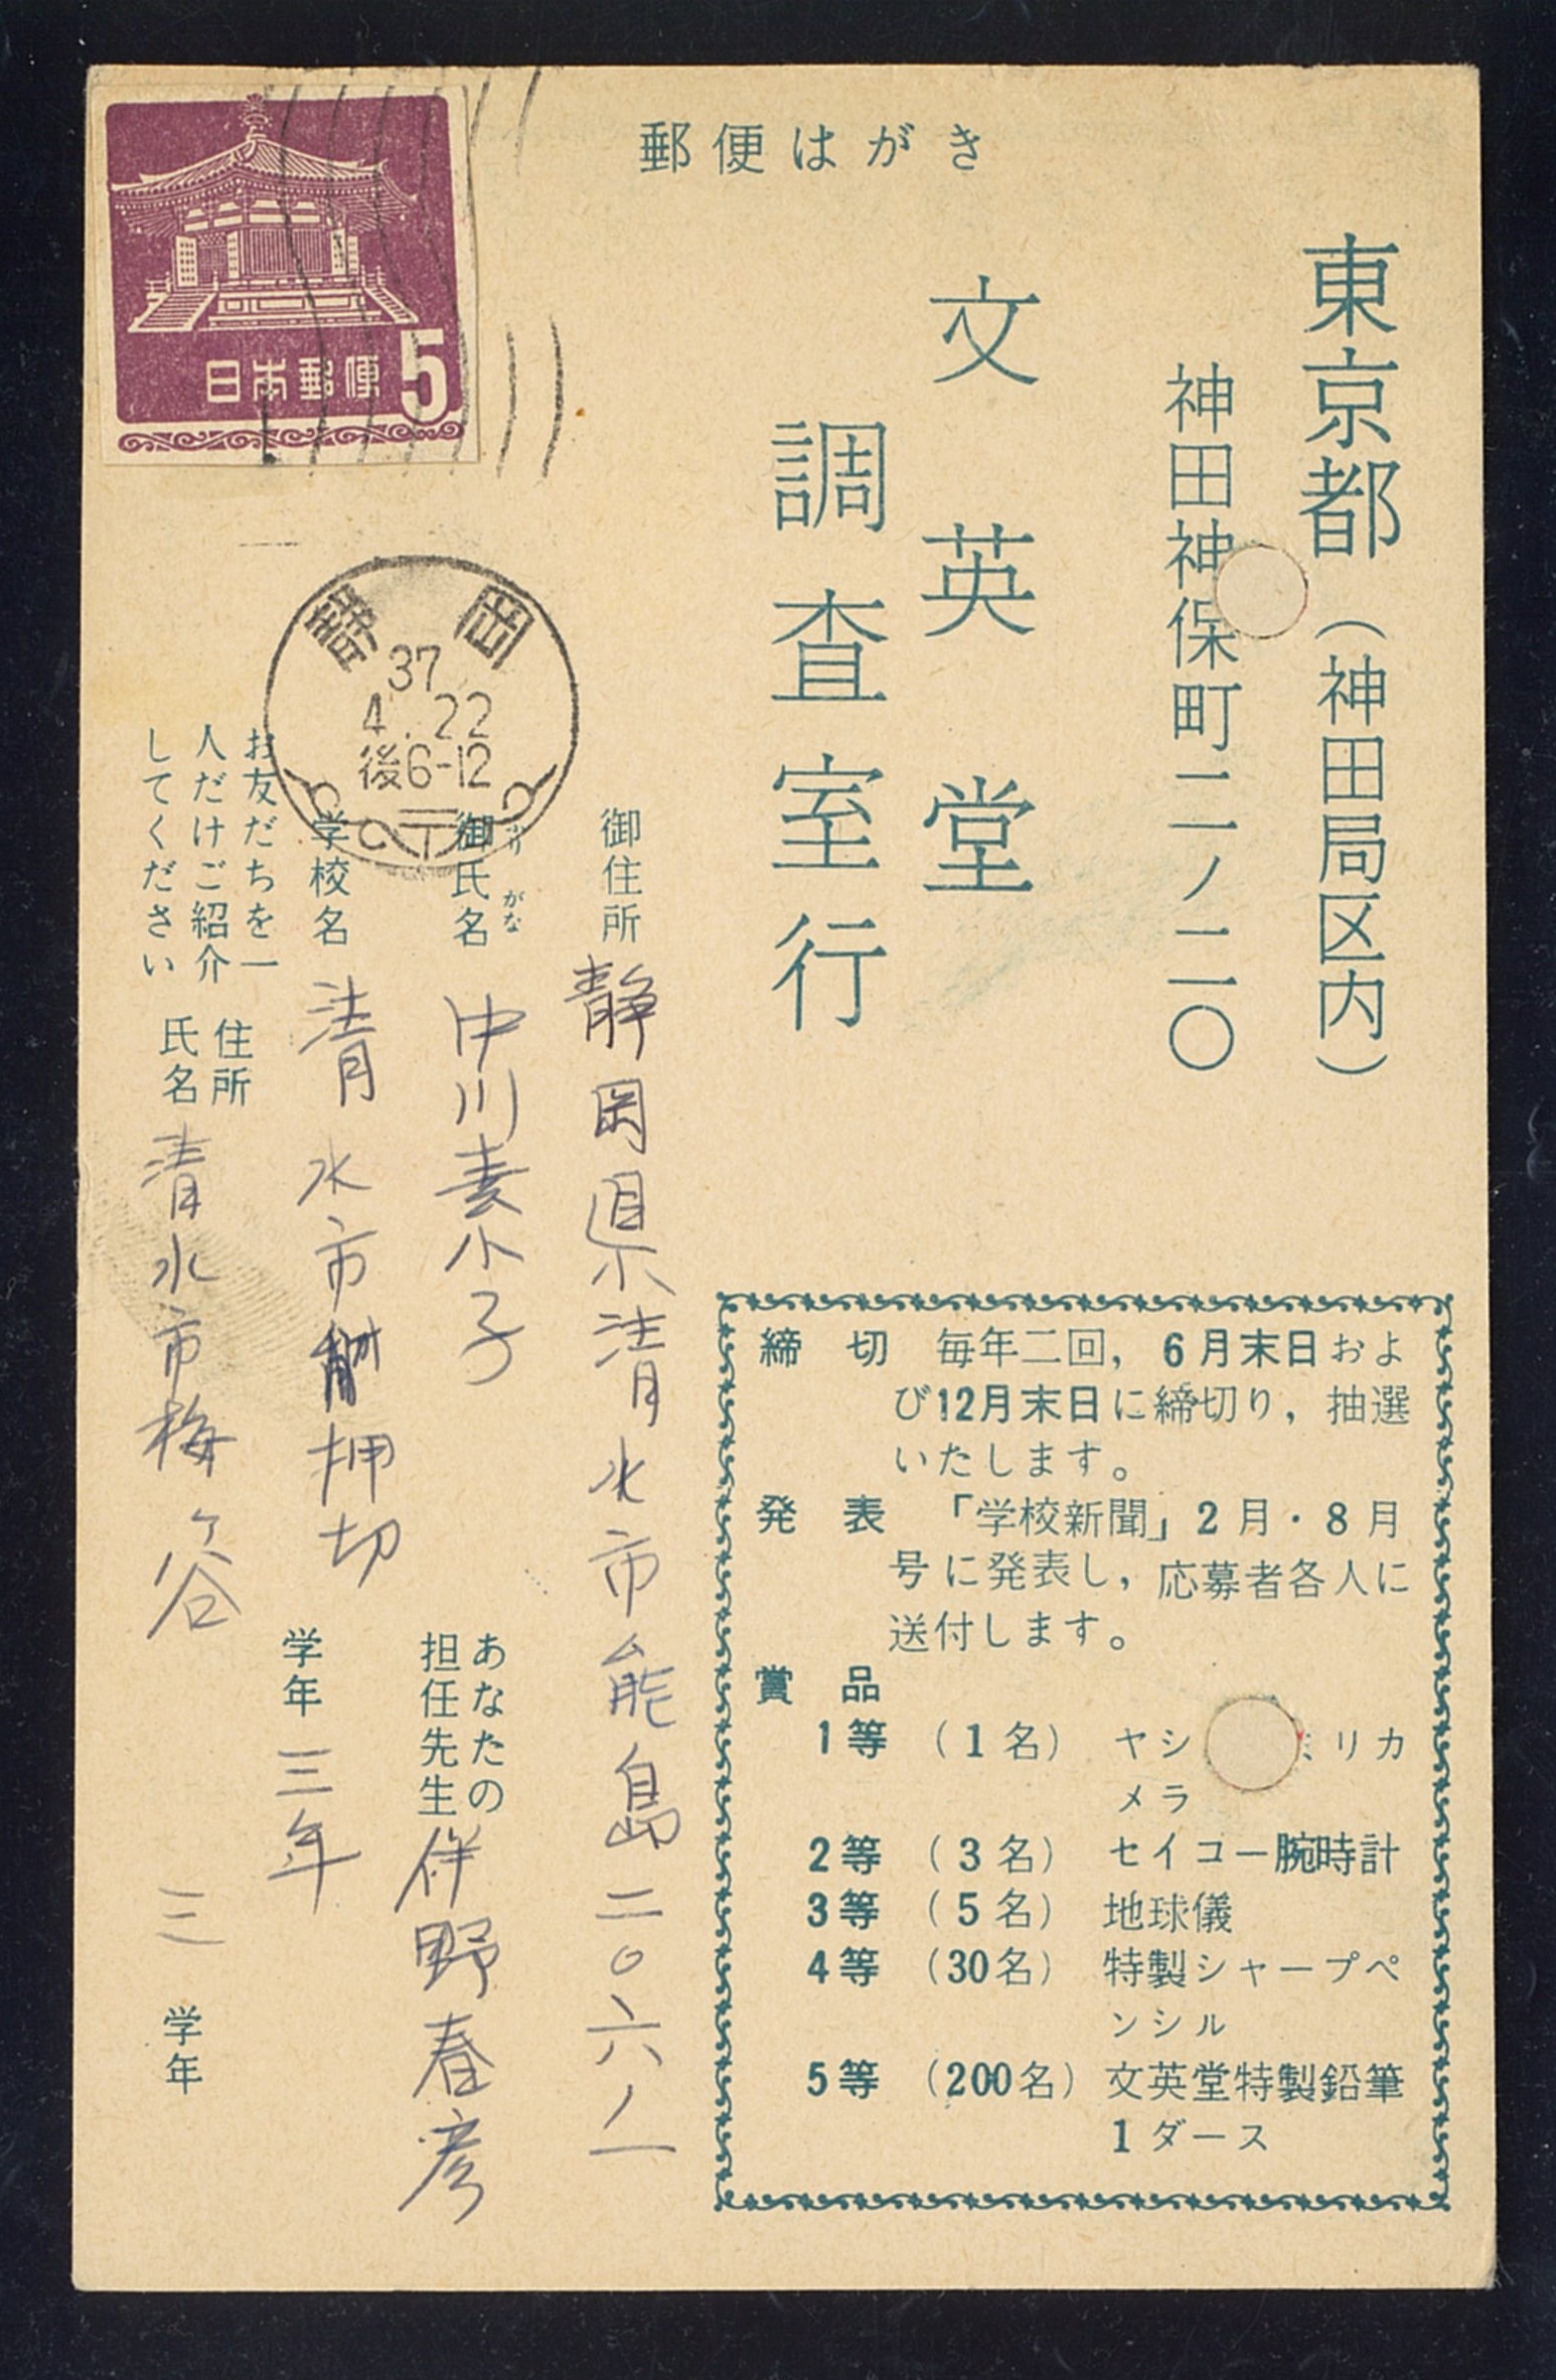 郵便はがき
東京都(神田局区内)
神田神保町二ノ二〇
文英堂
調査室行
日本郵便 5
静岡
37
4.22
後6-12
御住所 静岡県清水市能島二〇六ノ一
ふりがな
御氏名 中川素小子
学校名 清水市押切
あなたの
担任先生 伴野春彦
学年 三年
お友だちを一
人だけご紹介
してください
住所
氏名 清水市梅ケ谷
三 学年
締切 毎年二回,6月末日およ
び12月末日に締切り,抽選
いたします。
発表 「学校新聞」2月・8月
号に発表し,応募者各人に
送付します。
賞品
1等 (1名) ヤシ ミリカ
メラ
2等 (3名) セイコー腕時計
3等 (5名) 地球儀
4等 (30名) 特製シャープペ
ンシル
5等 (200名) 文英堂特製鉛筆
1ダース